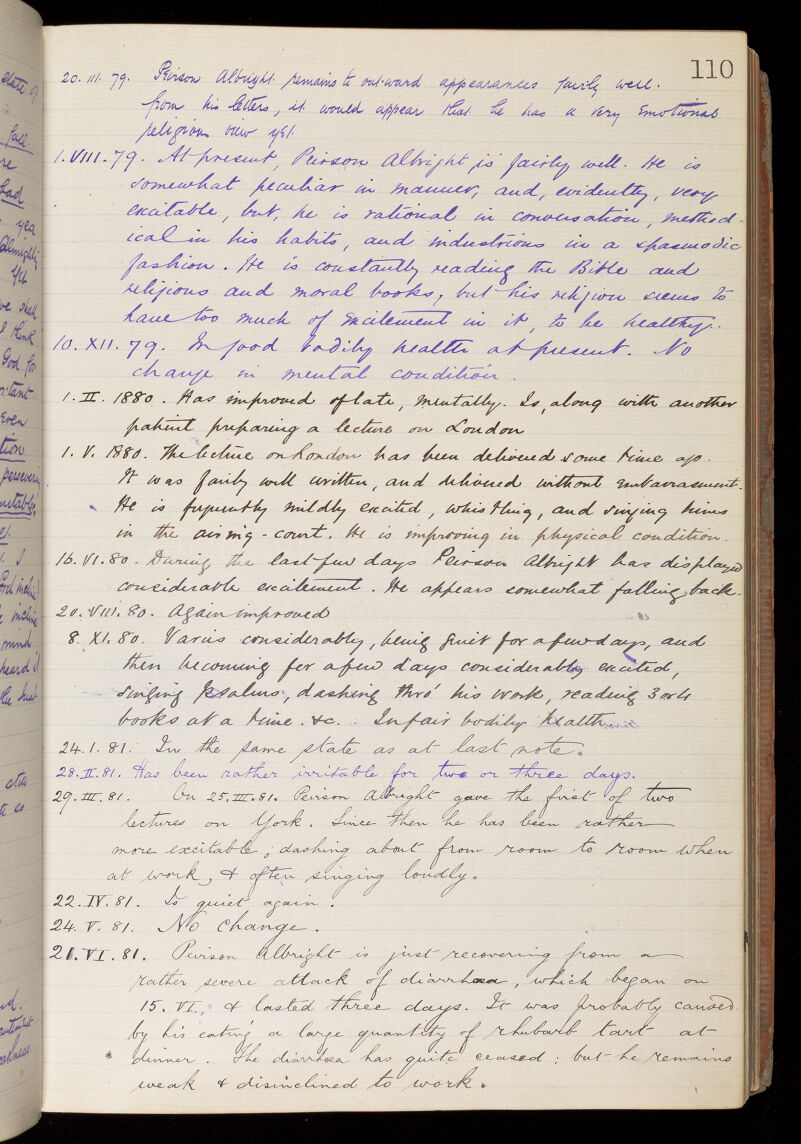 110
20. III. 79. Peirson Albright remains to outward appearances fairly well.
from his letters, it would appear that he has a very Emotional
religious view yet.
1. VIII. 79. At present, Peirson Albright is fairly well. He is
somewhat peculiar in manner, and, evidently, very
excitable, but, he is rational in conversation, method-
ical in his habits, and industrious in a spasmodic
fashion. He is constantly reading the Bible and
religious and moral books, but his religion seems to
have too much of excitement in it, to be healthy.
10. XII. 79. In good bodily health at present. No
change in mental condition.
1. II. 1880. Has improved of late, mentally. Is, along with another
patient preparing a lecture on London
1. V. 1880. The lecture on London has been delivered some time ago.
It was fairly well written, and delivered without embarrassment.
He is frequently mildly excited, whistling, and singing himns
in the airing-court. He is improving in physical condition.
16. VI. 80. During the last few days Peirson Albright has displayed
considerable excitement. He appears somewhat falling back.
20. VIII. 80. Again improved
8. XI. 80. Varies considerably, being quiet for a few days, and
then becoming for a few days considerably excited,
singing psalms, dashing thro' his work, reading 3 or 4
books at a time. &c. In fair bodily health
24. 1. 81. In the same state as at last note.
28. II. 81. Has been rather irritable for two or three days.
29. III. 81. On 25. III. 81. Peirson Albright gave the first of two
lectures on York. Since then he has been rather
more excitable, dashing about from room to room when
at work, & often singing loudly.
22. IV. 81. Is quiet again.
24. V. 81. No change.
21. VI. 81. Peirson Albright is just recovering from a
rather severe attack of diarrhœa, which began on
15. VI., & lasted three days. It was probably caused
by his eating a large quantity of rhubarb tart at
dinner. The diarrhœa has quite ceased; but he remains
weak & disinclined to work.